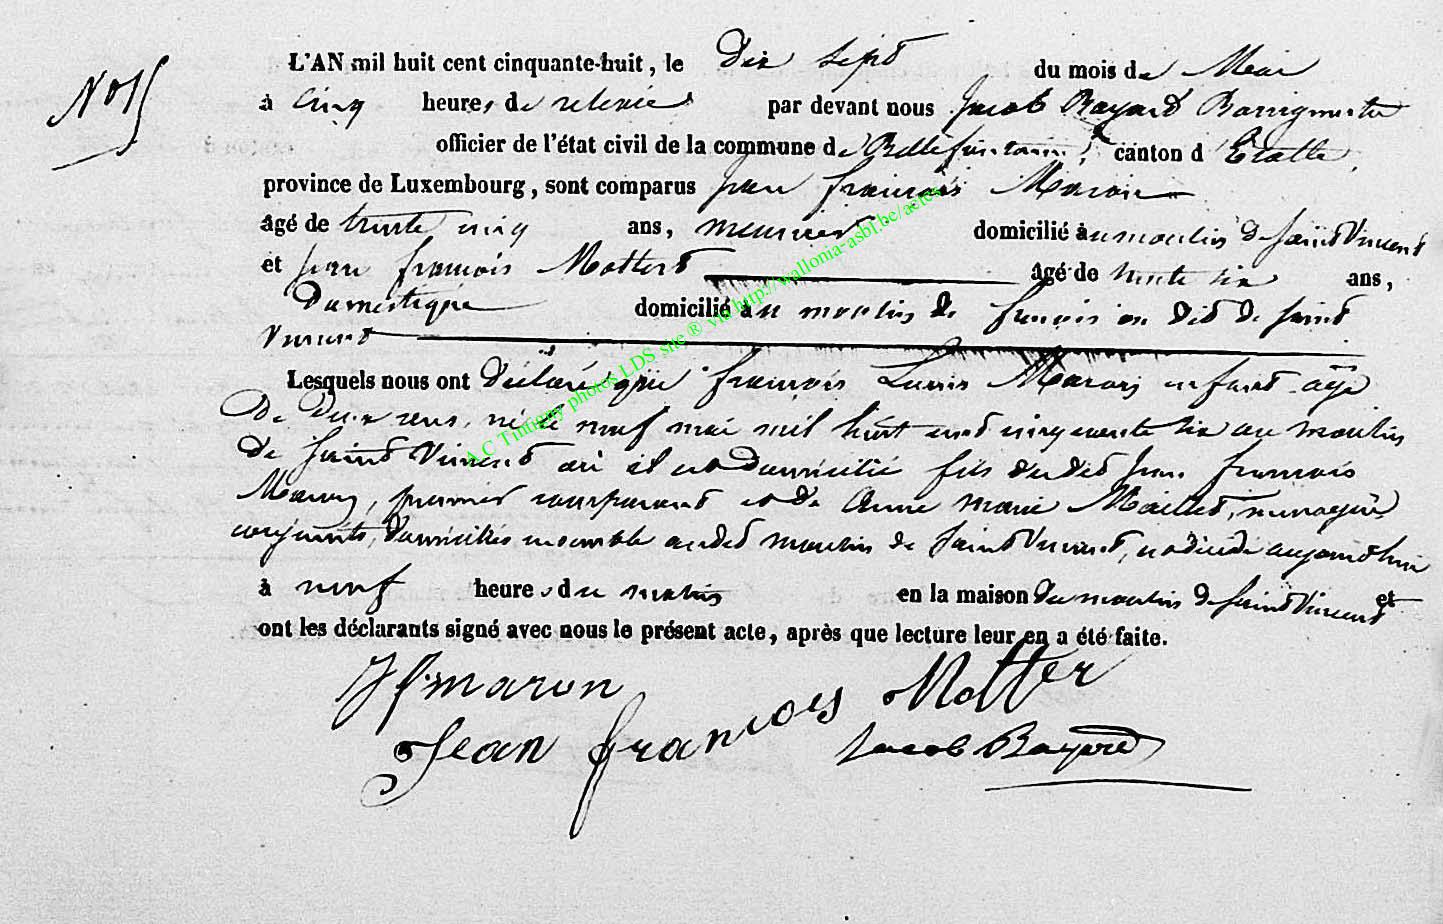 No 15
L'AN mil huit cent cinquante-huit, le Dix sept du mois de Mai
à cinq heures de relevée par devant nous Jacob Bayard Bourgmestre
officier de l'état civil de la commune de Bellefontaine, canton d'Etalle,
province de Luxembourg, sont comparus Jean François Maron
âgé de trente cinq ans, meunier domicilié au moulin de Saint Vincent
et Jean François Mottert âgé de trente six ans,
Domestique domicilié au moulin de dit de Saint
Vincent
Lesquels nous ont Déclaré que François Louis Maron enfant âgé
De Deux ans, né le neuf mai mil huit cent cinquante six au moulin
de Saint Vincent où il est domicilié fils du dit Jean François
Maron, premier comparant et de Anne Marie Maillet, ménagère,
conjoints, domiciliés ensemble audit moulin de Saint Vincent, est décédé aujourd'hui
à neuf heures du matin en la maison du moulin de Saint Vincent et
ont les déclarants signé avec nous le présent acte, après que lecture leur en a été faite.
JF maron
Jean françois Motter
Jacob Bayard
A C Tintigny photos LDS site ® via http://wallonia-asbl.be/actes